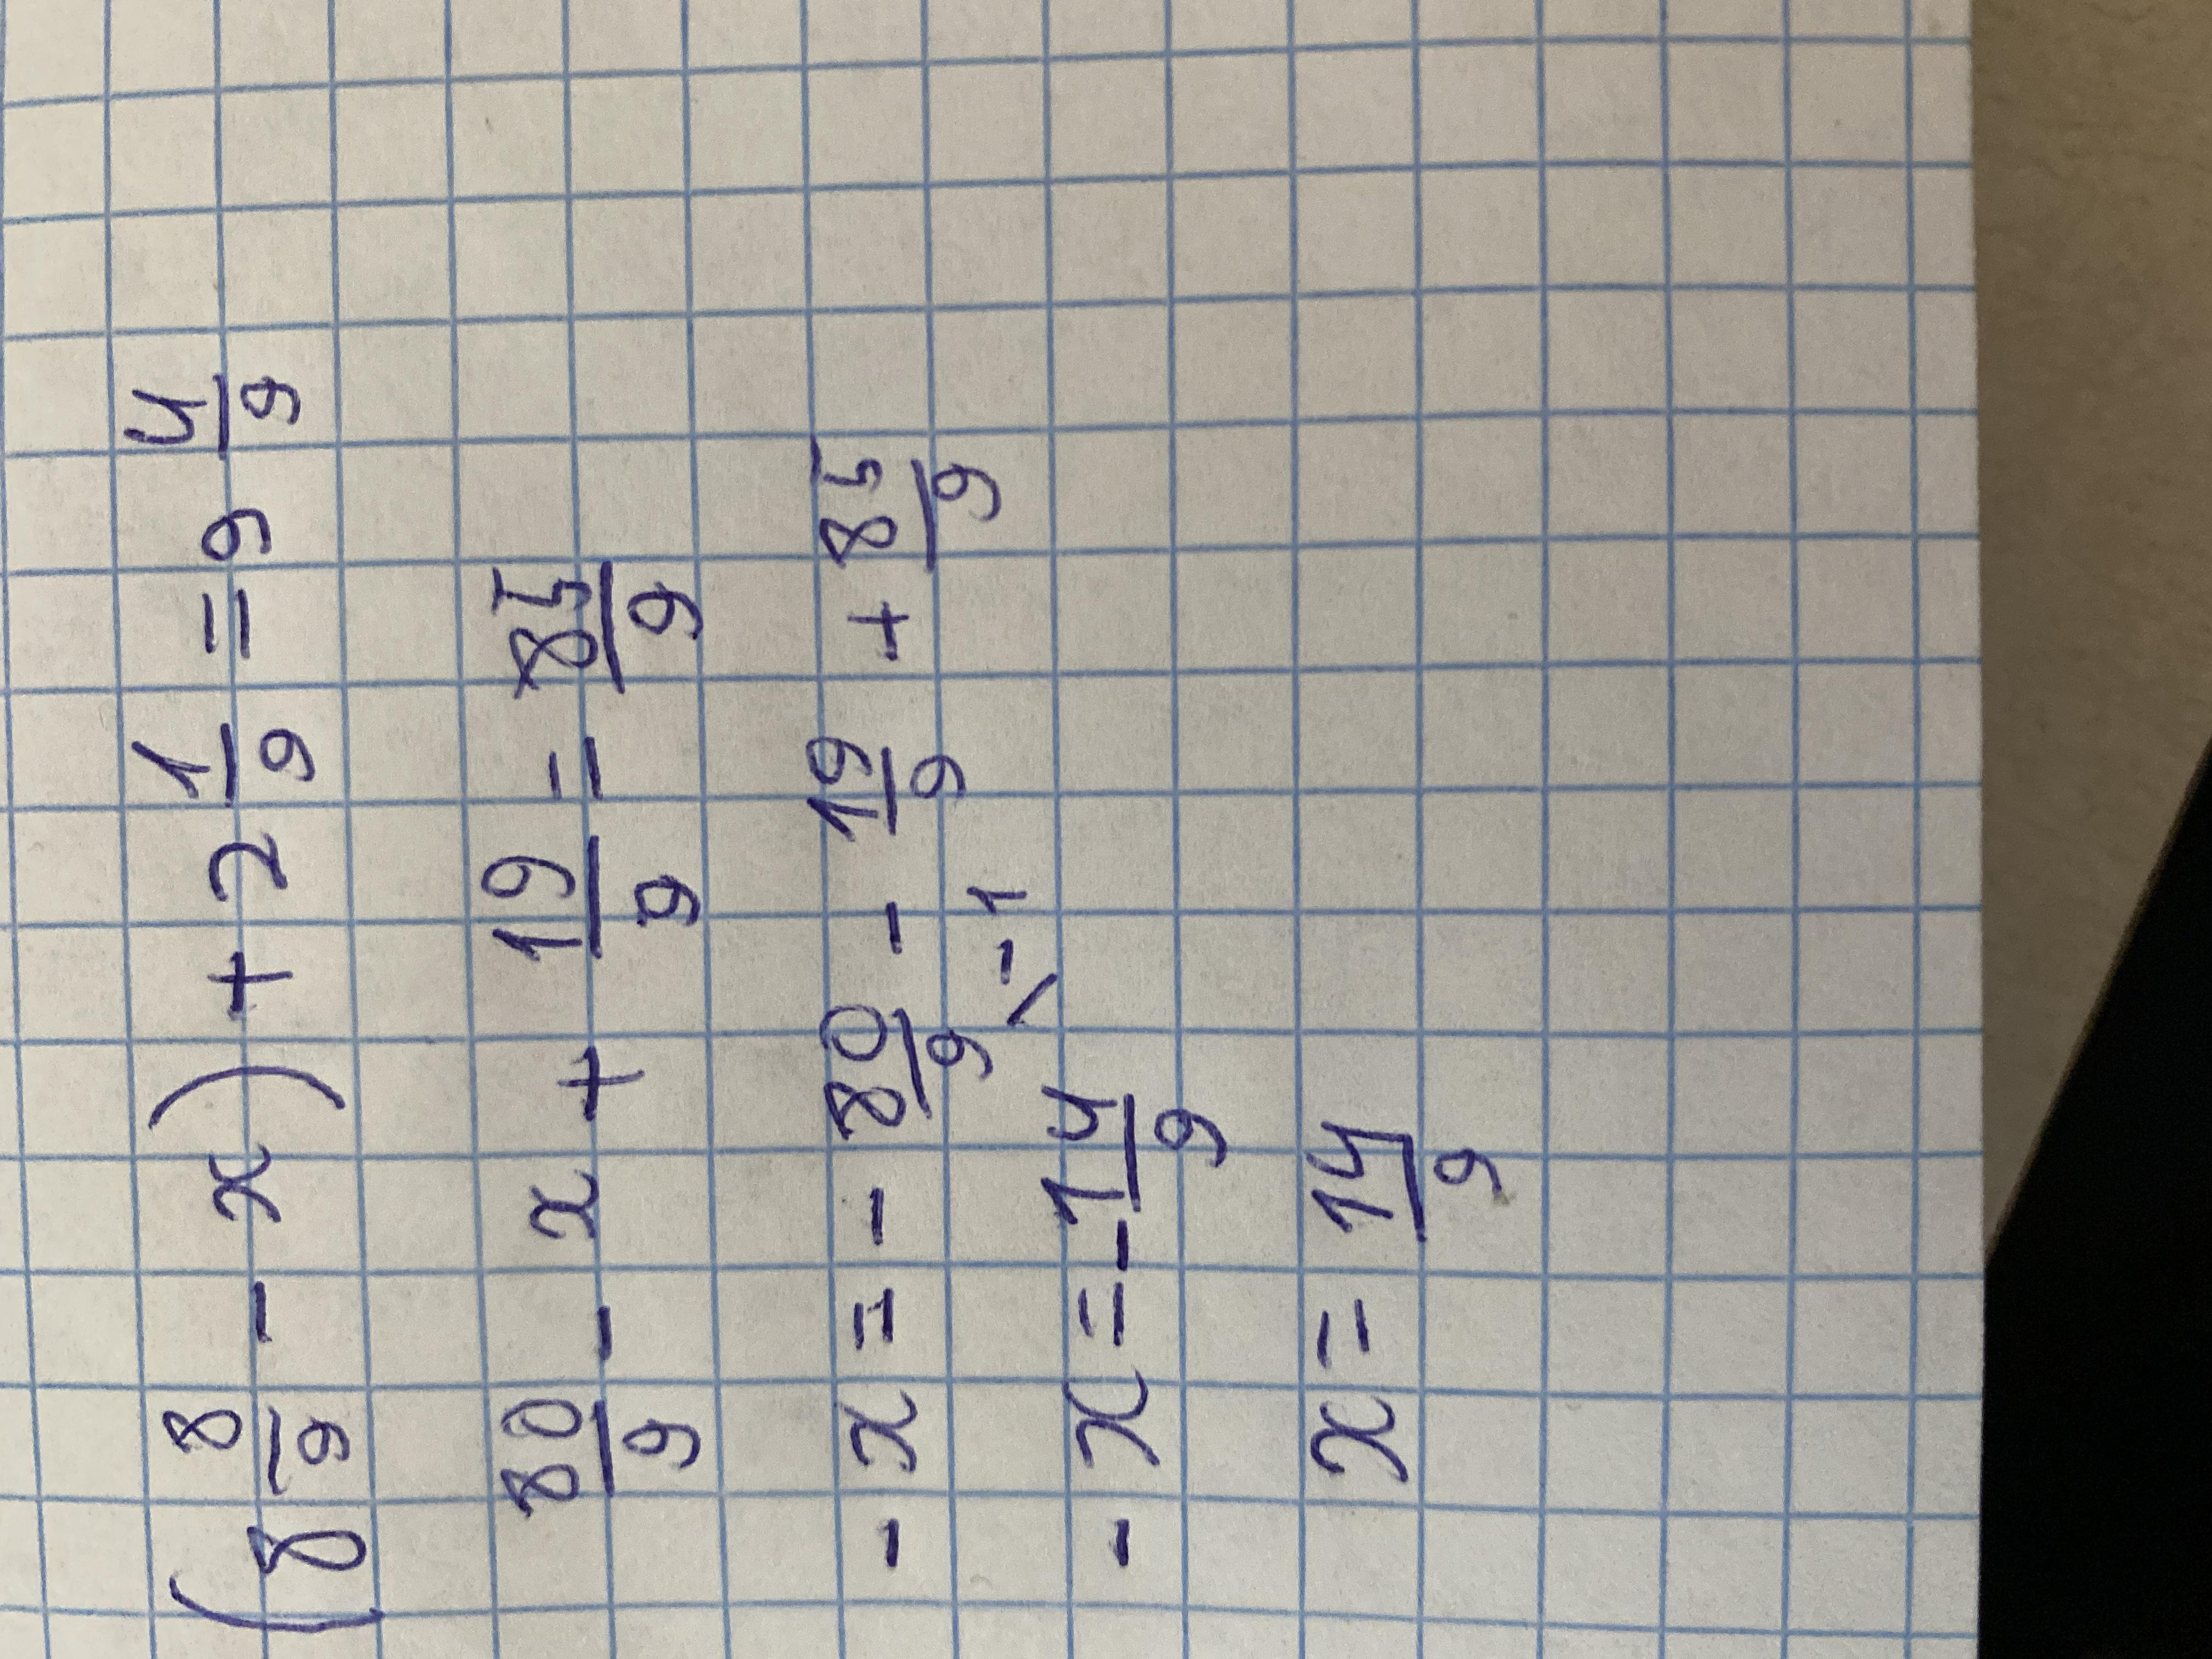 (8 8/9 - x) + 2 1/9 = 9 4/9
80/9 - x + 19/9 = 85/9
- x = - 80/9 - 19/9 + 85/9
- x = - 14/9 \ -1
x = 14/9